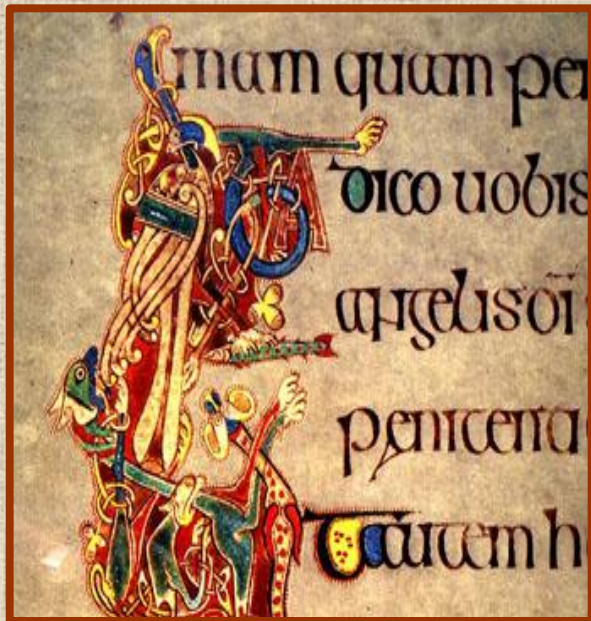 mam quam per
dico uobis
angelis di
penitentia
autem h